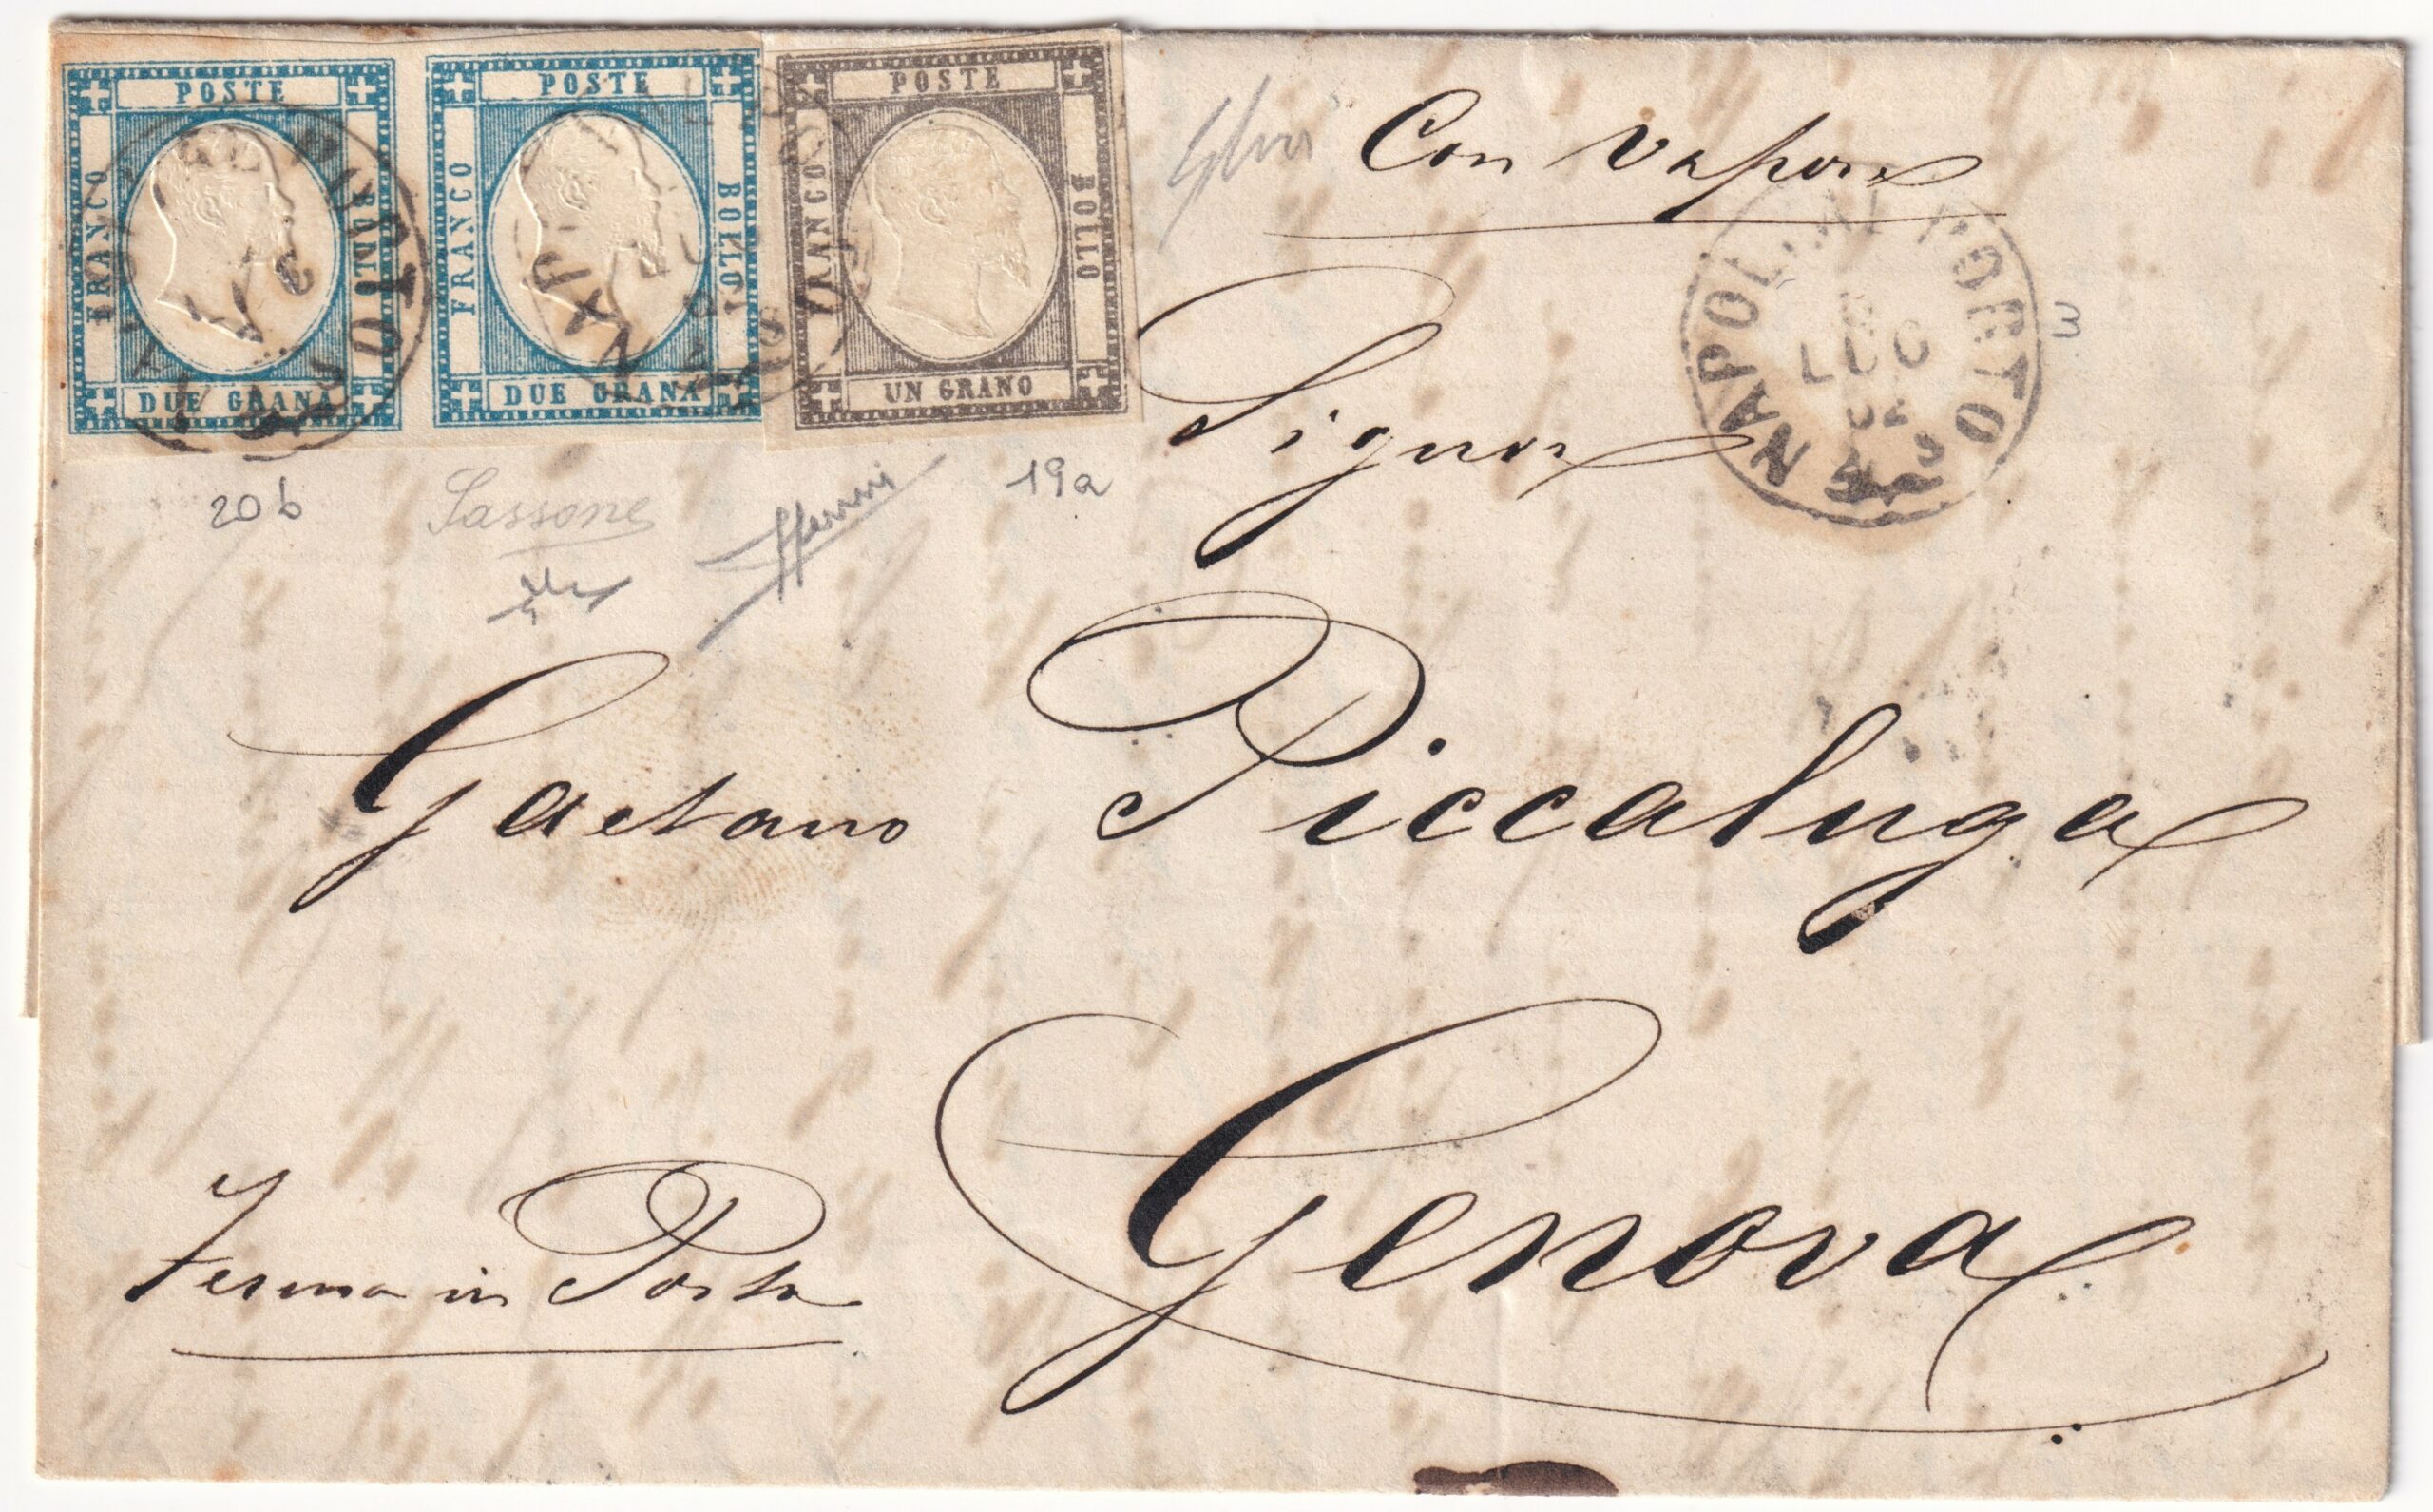 POSTE
FRANCO
BOLLO
DUE GRANA
POSTE
FRANCO
BOLLO
DUE GRANA
POSTE
FRANCO
BOLLO
UN GRANO
Con Vapore
NAPOLI AL PORTO
LUG
62
3
Signor
20b
Sassone
19a
Gaetano Piccaluga
Genova
Ferma in Posta